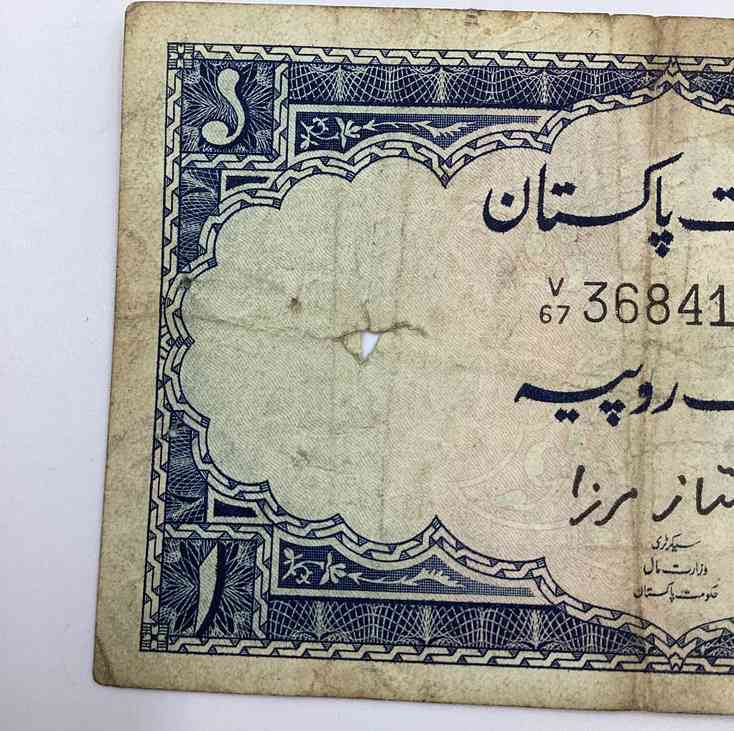 ১
پاکستان
V
67 36841
روپیہ
تاز مرزا
سیکرٹری
وزارت مال
حکومت پاکستان
۱